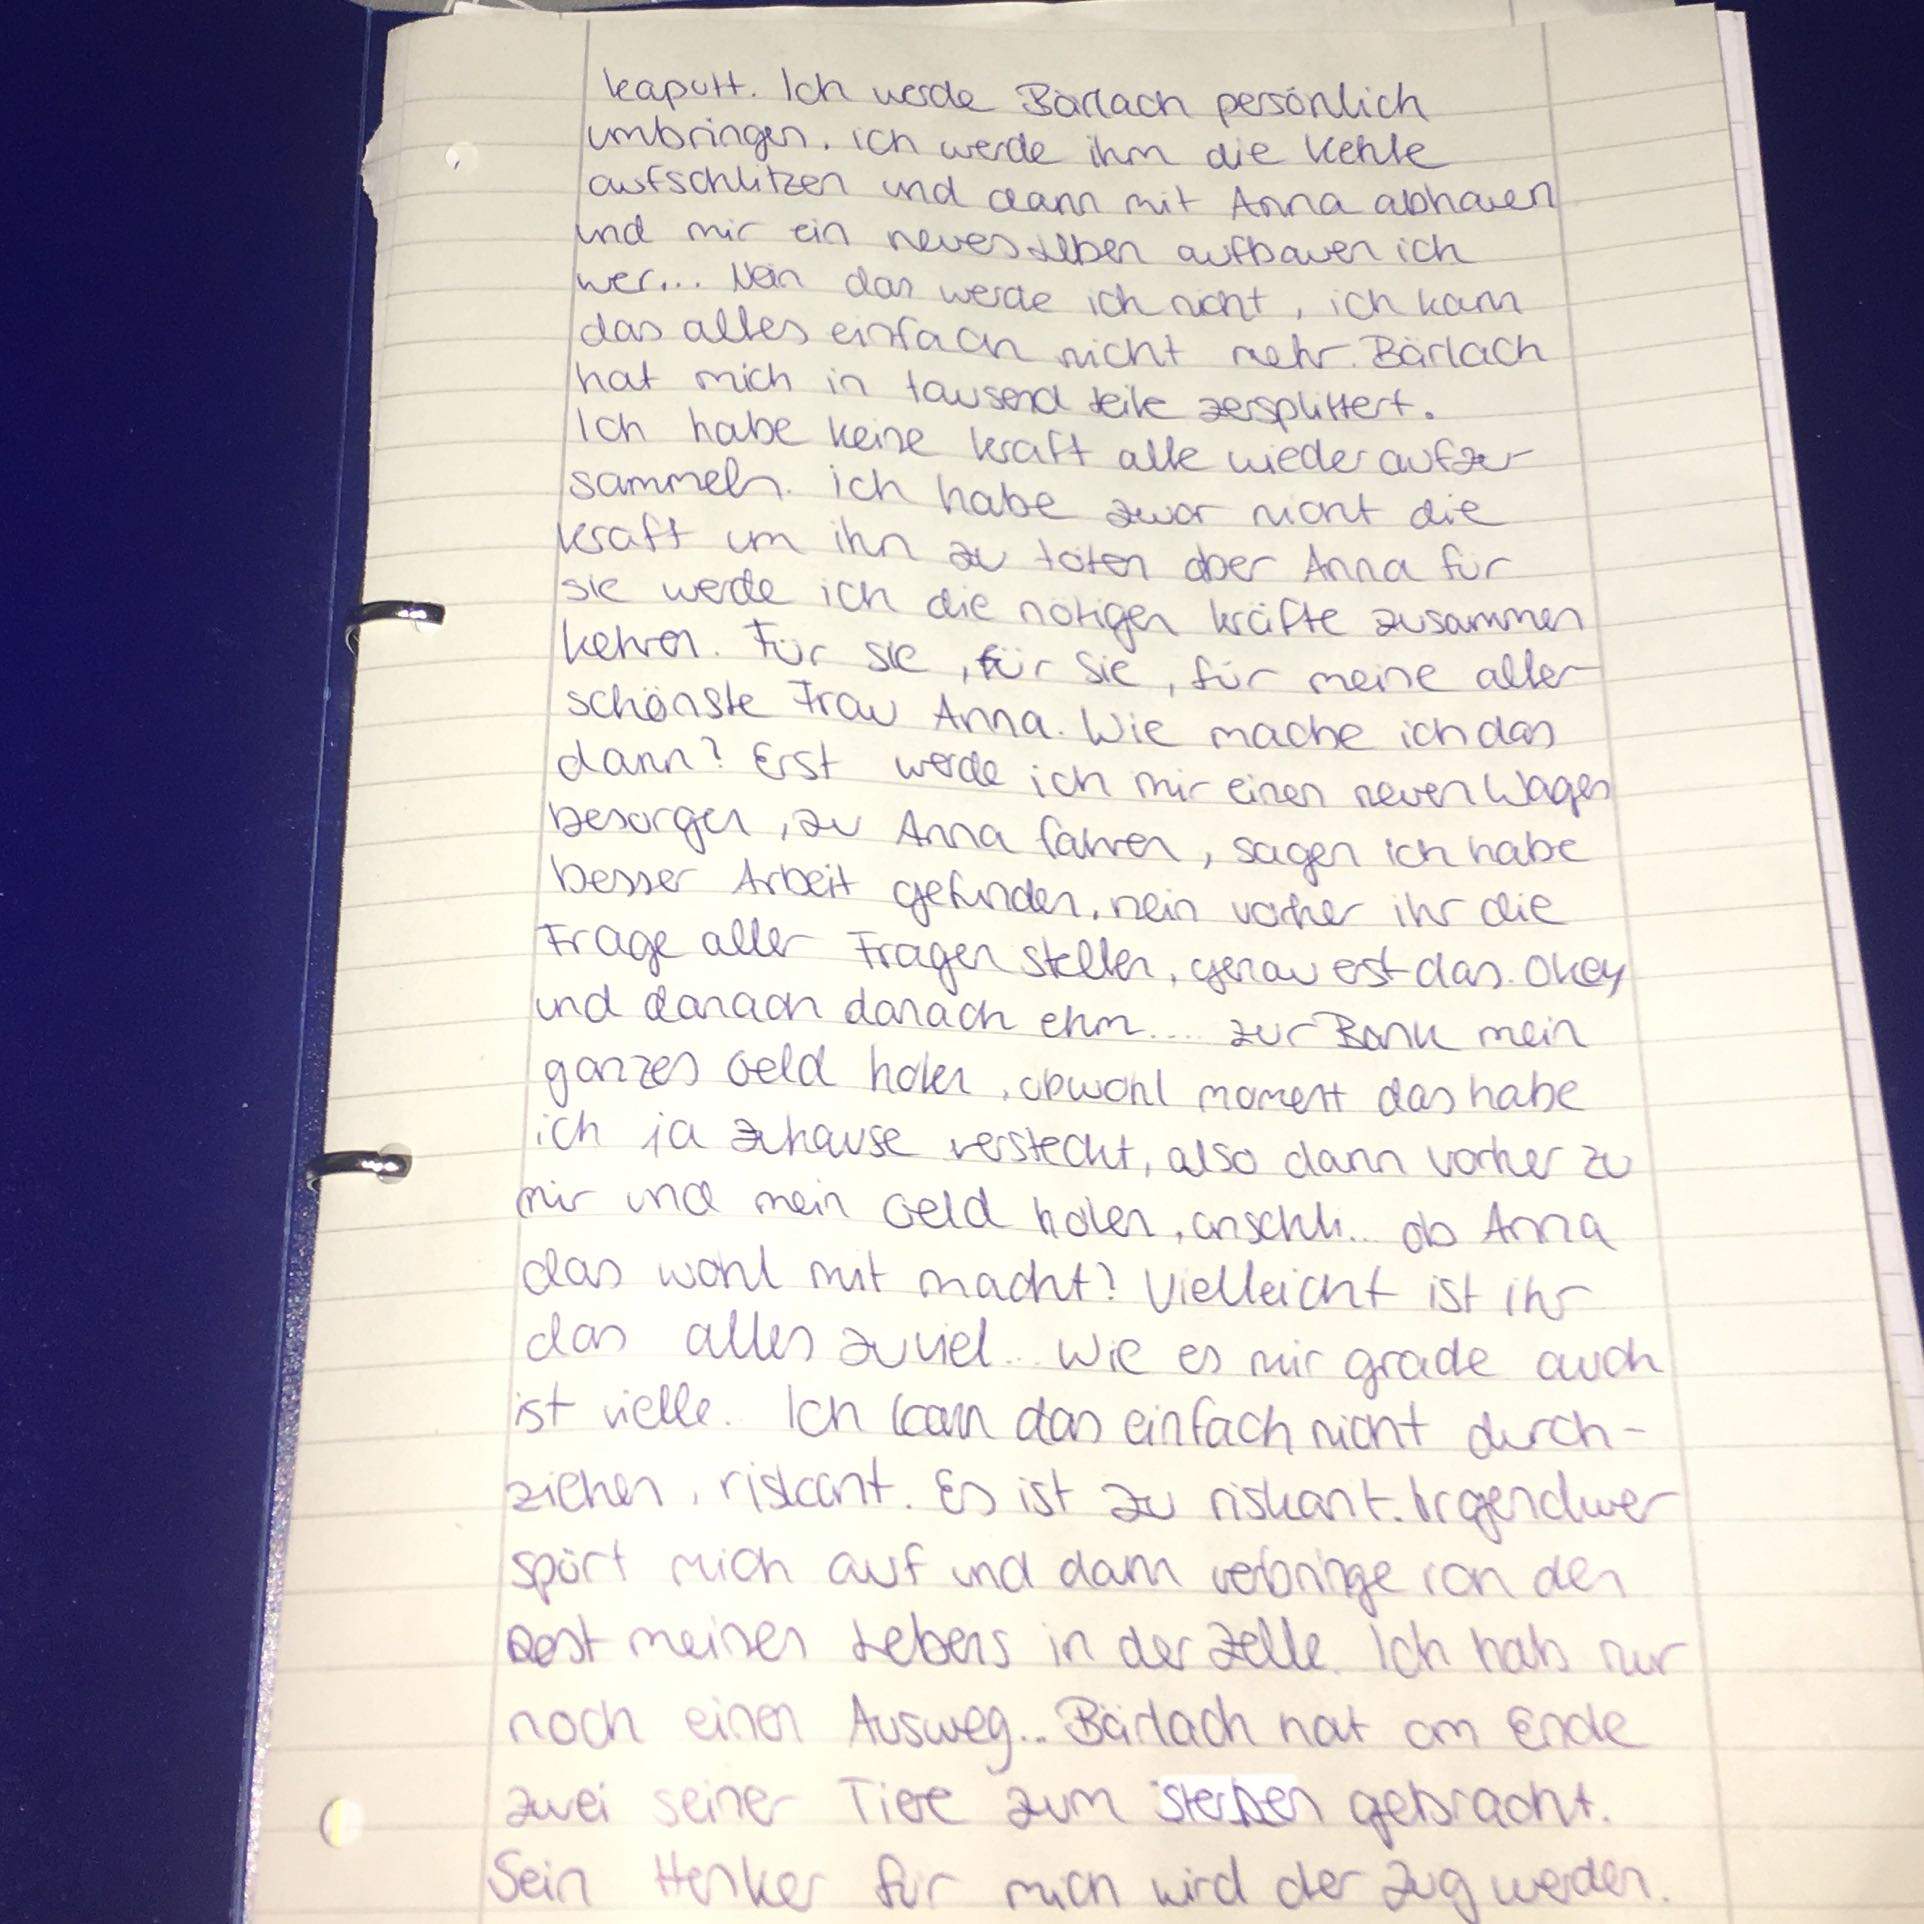 kaputt. Ich werde Bärlach persönlich
umbringen. ich werde ihm die Kehle
aufschlitzen und dann mit Anna abhauen
und mir ein neues Leben aufbauen ich
wer... Nein das werde ich nicht, ich kann
das alles einfach nicht mehr. Bärlach
hat mich in tausend teile zersplittert.
Ich habe keine kraft alle wieder aufzu-
sammeln. ich habe zwar nicht die
kraft um ihn zu töten aber Anna für
sie werde ich die nötigen kräfte zusammen
kehren. Für sie, für sie, für meine aller-
schönste Frau Anna. Wie mache ich das
dann? Erst werde ich mir einen neuen Wagen
besorgen, zu Anna fahren, sagen ich habe
besser Arbeit gefunden, nein vorher ihr die
Frage aller Fragen stellen, genau erst das. Okey
und danach danach ehm.... zur Bank mein
ganzes Geld holen, obwohl moment das habe
ich ja zuhause versteckt, also dann vorher zu
mir und mein Geld holen, anschli... ob Anna
das wohl mit macht? Vielleicht ist ihr
das alles zu viel... Wie es mir grade auch
ist vielle.. Ich kann das einfach nicht durch-
ziehen, riskant. Es ist zu riskant. Irgendwer
spürt mich auf und dann verbringe ich den
Rest meines Lebens in der Zelle. Ich hab nur
noch einen Ausweg... Bärlach hat am Ende
zwei seiner Tiere zum sterben gebracht.
Sein Henker für mich wird der Zug werden.